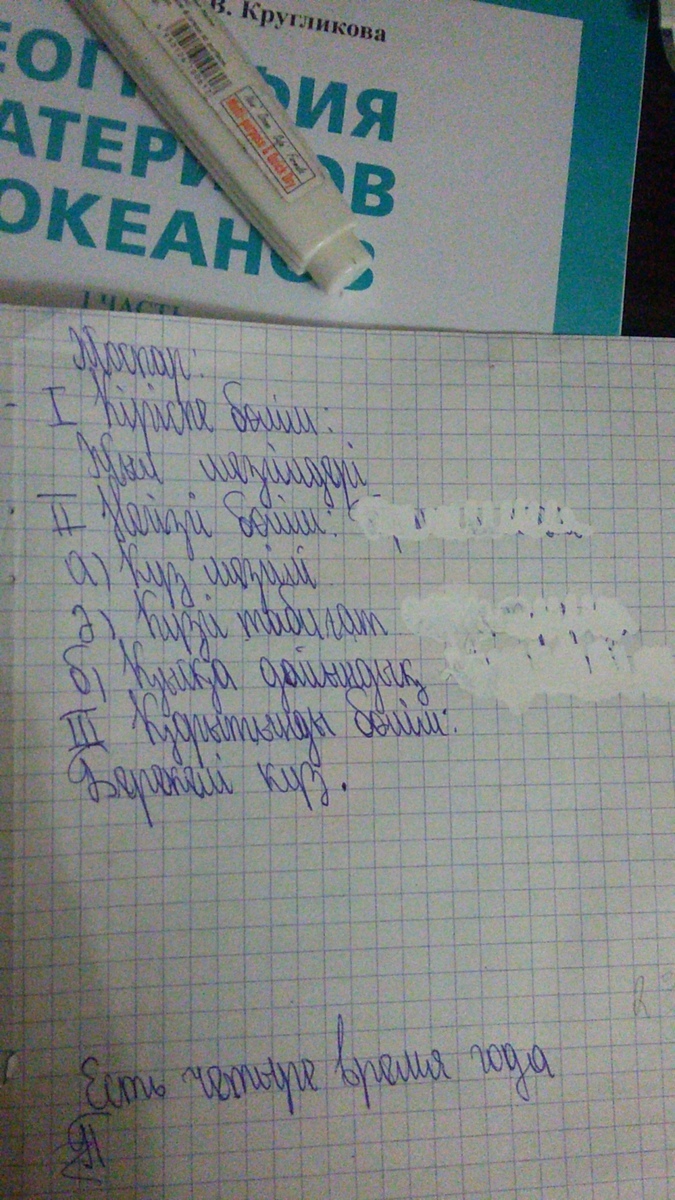 В. Кругликова
ЕОГРАФИЯ
АТЕРИКОВ
ОКЕАНОВ
1 ЧАСТЬ
Multi-purpose & Quick Dry
Жоспар:
I Кіріспе бөлім:
Жыл мезгілдері
II Негізгі бөлім:
а) Күз мезгілі
ә) Күзгі табиғат
б) Қысқа дайындық
III Қорытынды бөлім:
Берекелі күз.
Есть четыре время года